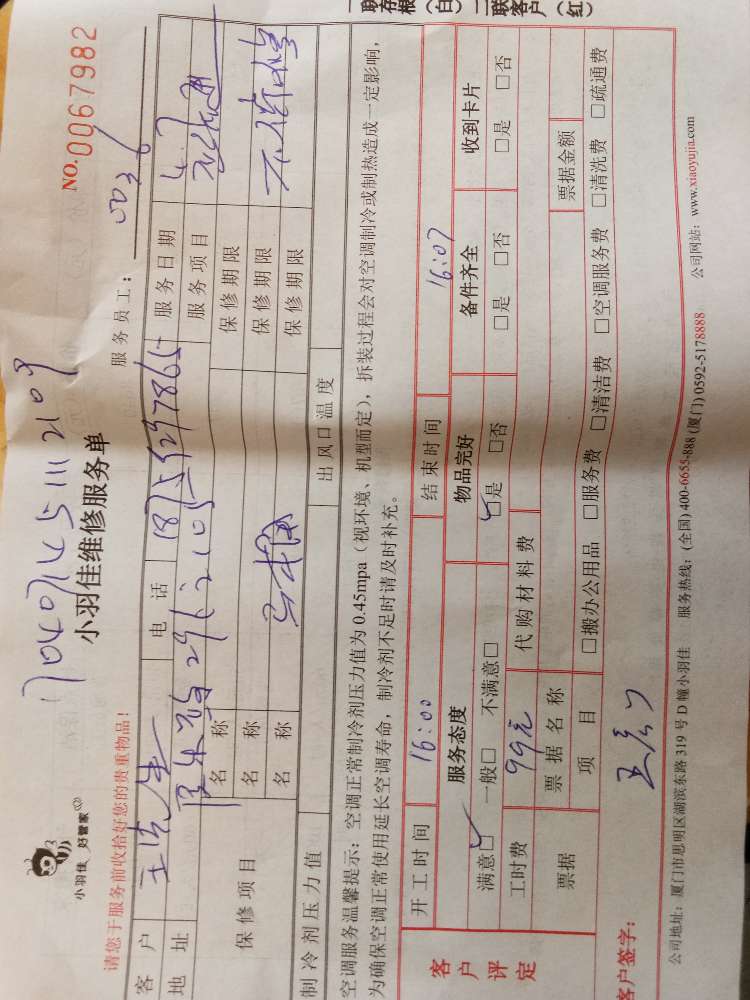 一联存根（白）二联客户（红）
NO.0067982
小羽佳 好管家
17040745111 2109
小羽佳维修服务单
请您于服务前收拾好您的贵重物品！
服务员工：0036
客户 王先生 电话 18759297865 服务日期 4.7
地址 296号2105 服务项目
保修项目 名称 保修期限
名称 保修期限
名称 保修期限
制冷剂压力值 出风口温度
空调服务温馨提示：空调正常制冷剂压力值为0.45mpa（视环境、机型而定），拆装过程会对空调制冷或制热造成一定影响，
为确保空调正常使用延长空调寿命，制冷剂不足时请及时补充。
客户评定
开工时间 16:00 结束时间 16:07
服务态度 物品完好 备件齐全 收到卡片
满意☑ 一般□ 不满意□ ☑是 □否 □是 □否 □是 □否
工时费 99元 代购材料费
票据 票据名称 票据金额
项目 □搬办公用品 □服务费 □清洁费 □空调服务费 □清洗费 □疏通费
客户签字：
公司地址：厦门市思明区湖滨东路319号D幢小羽佳 服务热线：(全国) 400-6655-888 (厦门) 0592-5178888 公司网站：www.xiaoyujia.com